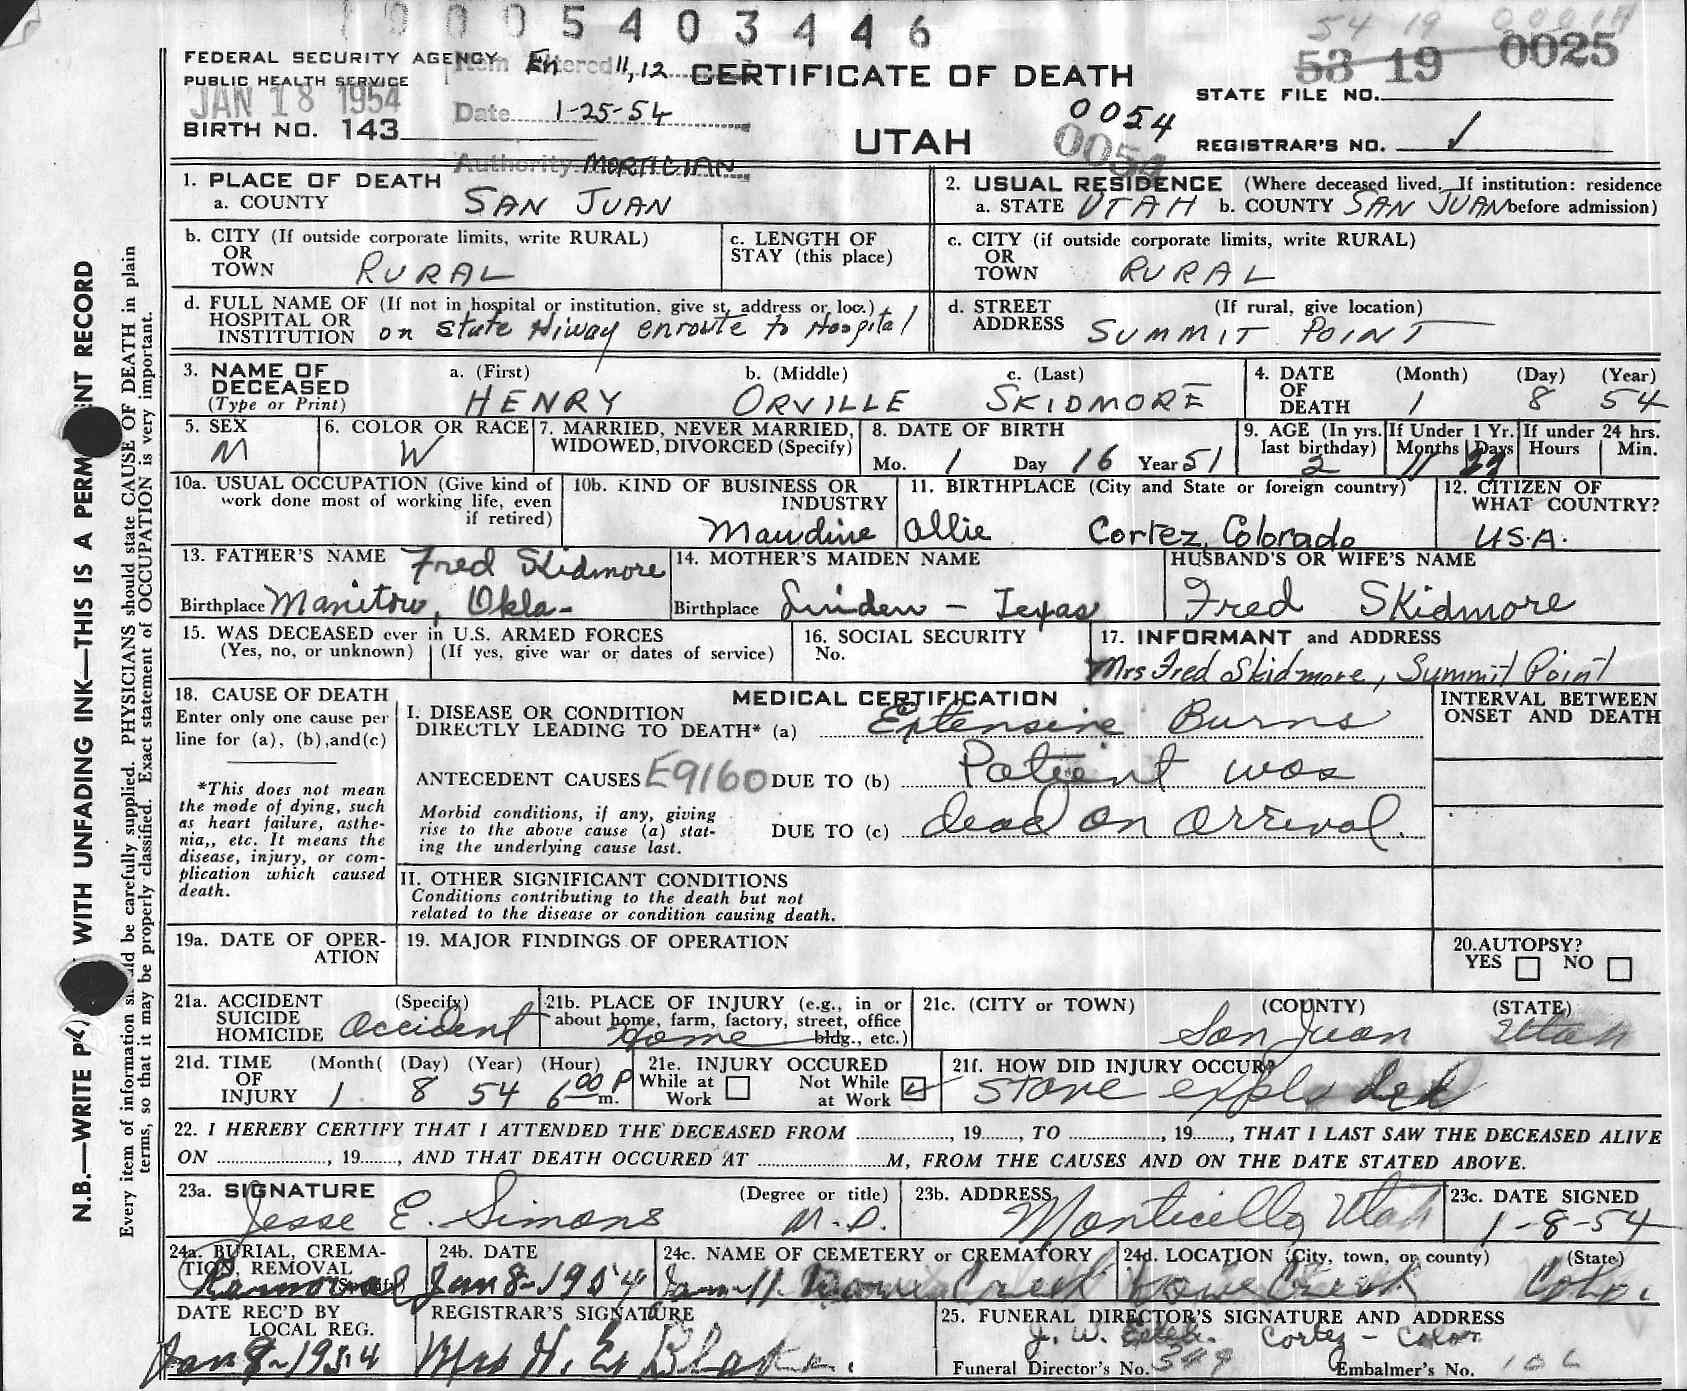 19005403446
54 19
53 19 0025
FEDERAL SECURITY AGENCY
PUBLIC HEALTH SERVICE
JAN 18 1954
BIRTH NO. 143
Item Entered 11, 12
Date 1-25-54
Authority MORTICIAN
CERTIFICATE OF DEATH
UTAH
0054
0054
STATE FILE NO.
REGISTRAR'S NO. 1
1. PLACE OF DEATH
a. COUNTY SAN JUAN
2. USUAL RESIDENCE (Where deceased lived. If institution: residence
a. STATE UTAH b. COUNTY SAN JUAN before admission)
b. CITY (If outside corporate limits, write RURAL)
OR
TOWN RURAL
c. LENGTH OF
STAY (this place)
c. CITY (if outside corporate limits, write RURAL)
OR
TOWN RURAL
d. FULL NAME OF (If not in hospital or institution, give st. address or loc.)
HOSPITAL OR
INSTITUTION on State Hiway enroute to Hospital
d. STREET (If rural, give location)
ADDRESS SUMMIT POINT
3. NAME OF
DECEASED
(Type or Print)
a. (First) b. (Middle) c. (Last)
HENRY ORVILLE SKIDMORE
4. DATE (Month) (Day) (Year)
OF
DEATH 1 8 54
5. SEX
M
6. COLOR OR RACE
W
7. MARRIED, NEVER MARRIED,
WIDOWED, DIVORCED (Specify)
8. DATE OF BIRTH
Mo. 1 Day 16 Year 51
9. AGE (In yrs.
last birthday) 2
If Under 1 Yr.
Months 11 Days 22
If under 24 hrs.
Hours Min.
10a. USUAL OCCUPATION (Give kind of
work done most of working life, even
if retired)
10b. KIND OF BUSINESS OR
INDUSTRY
11. BIRTHPLACE (City and State or foreign country)
Cortez, Colorado
12. CITIZEN OF
WHAT COUNTRY?
U.S.A.
Maudine Allie
13. FATHER'S NAME Fred Skidmore
Birthplace Manitou, Okla-
14. MOTHER'S MAIDEN NAME
Birthplace Linden - Texas
HUSBAND'S OR WIFE'S NAME
Fred Skidmore
15. WAS DECEASED ever in U.S. ARMED FORCES
(Yes, no, or unknown) (If yes, give war or dates of service)
16. SOCIAL SECURITY
No.
17. INFORMANT and ADDRESS
Mrs Fred Skidmore, Summit Point
18. CAUSE OF DEATH
Enter only one cause per
line for (a), (b), and (c)
*This does not mean
the mode of dying, such
as heart failure, asthe-
nia,, etc. It means the
disease, injury, or com-
plication which caused
death.
MEDICAL CERTIFICATION
I. DISEASE OR CONDITION
DIRECTLY LEADING TO DEATH* (a) Extensive Burns
ANTECEDENT CAUSES E9160 DUE TO (b) Patient was
Morbid conditions, if any, giving
rise to the above cause (a) stat-
ing the underlying cause last.
DUE TO (c) dead on arrival.
INTERVAL BETWEEN
ONSET AND DEATH
II. OTHER SIGNIFICANT CONDITIONS
Conditions contributing to the death but not
related to the disease or condition causing death.
19a. DATE OF OPER-
ATION
19. MAJOR FINDINGS OF OPERATION
20. AUTOPSY?
YES NO
21a. ACCIDENT (Specify)
SUICIDE
HOMICIDE Accident
21b. PLACE OF INJURY (e.g., in or
about home, farm, factory, street, office
bldg., etc.)
Home
21c. (CITY or TOWN) (COUNTY) (STATE)
San Juan Utah
21d. TIME (Month( (Day) (Year) (Hour)
OF
INJURY 1 8 54 6:00 P m.
21e. INJURY OCCURED
While at Work Not While at Work
21f. HOW DID INJURY OCCUR?
Stove exploded
22. I HEREBY CERTIFY THAT I ATTENDED THE DECEASED FROM , 19 , TO , 19 , THAT I LAST SAW THE DECEASED ALIVE
ON , 19 , AND THAT DEATH OCCURED AT M, FROM THE CAUSES AND ON THE DATE STATED ABOVE.
23a. SIGNATURE (Degree or title)
Jesse E. Simons M.D.
23b. ADDRESS
Monticello, Utah
23c. DATE SIGNED
1-8-54
24a. BURIAL, CREMA-
TION, REMOVAL
(Specify)
Removal
24b. DATE
Jan 8-1954
24c. NAME OF CEMETERY or CREMATORY
Creek
24d. LOCATION (City, town, or county) (State)
Creek Colo.
DATE REC'D BY
LOCAL REG.
Jan 8-1954
REGISTRAR'S SIGNATURE
Mrs H. E. Blake.
25. FUNERAL DIRECTOR'S SIGNATURE AND ADDRESS
J. W. Cortez - Color
Funeral Director's No. 549 Embalmer's No.
N.B.—WRITE WITH UNFADING INK—THIS IS A PERM NT RECORD
Every item of information ld be carefully supplied. PHYSICIANS should state CAUSE OF DEATH in plain
terms, so that it may be properly classified. Exact statement of OCCUPATION is very important.